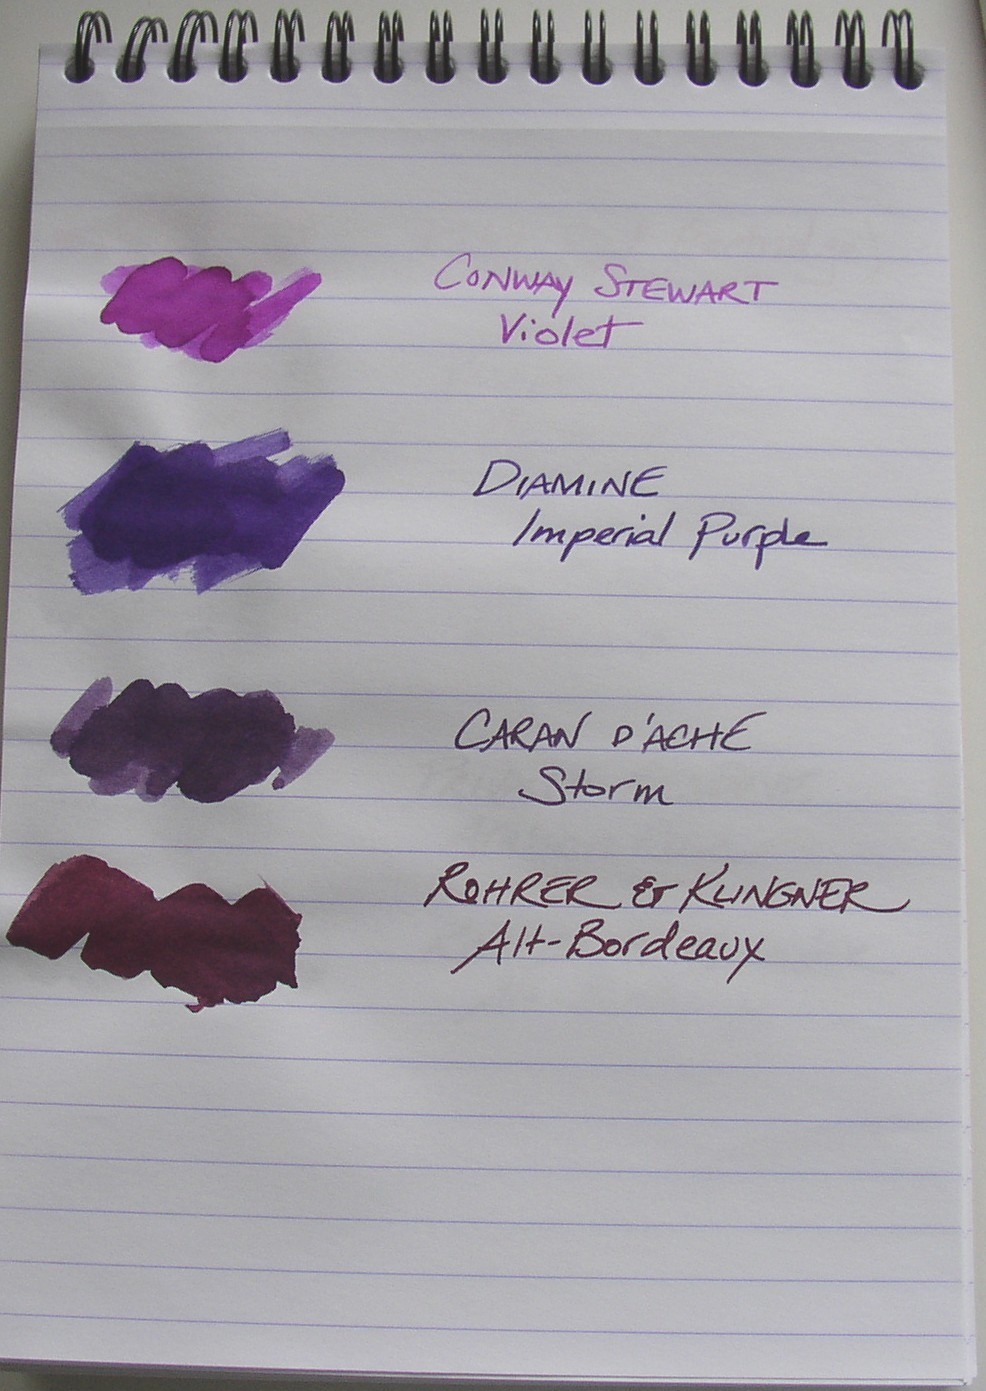 CONWAY STEWART
Violet
DIAMINE
Imperial Purple
CARAN D'ACHE
Storm
ROHRER & KLINGNER
Alt-Bordeaux